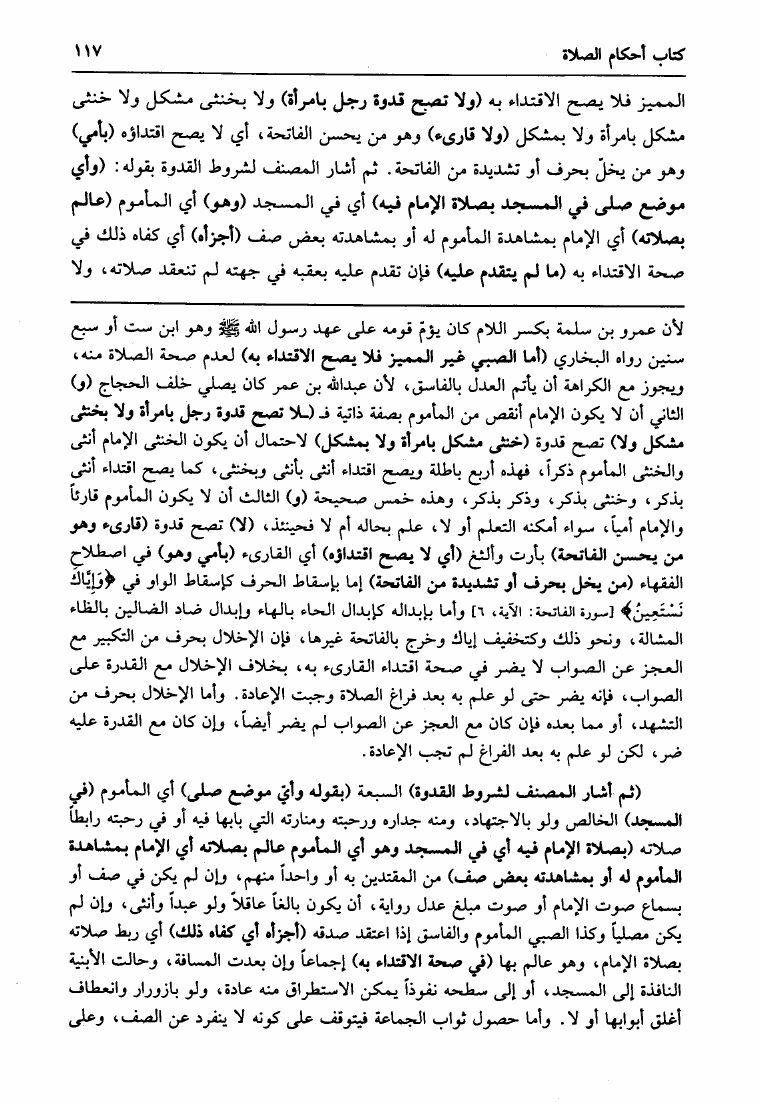 كتاب أحكام الصلاة
١١٧
المميز فلا يصح الاقتداء به (ولا تصح قدوة رجل بامرأة) ولا بخنثى مشكل ولا خنثى
مشكل بامرأة ولا بمشكل (ولا قارىء) وهو من يحسن الفاتحة، أي لا يصح اقتداؤه (بأمي)
وهو من يخلّ بحرف أو تشديدة من الفاتحة. ثم أشار المصنف لشروط القدوة بقوله: (وأي
موضع صلى في المسجد بصلاة الإمام فيه) أي في المسجد (وهو) أي المأموم (عالم
بصلاته) أي الإمام بمشاهدة المأموم له أو بمشاهدته بعض صف (أجزأه) أي كفاه ذلك في
صحة الاقتداء به (ما لم يتقدم عليه) فإن تقدم عليه بعقبه في جهته لم تنعقد صلاته، ولا
لأن عمرو بن سلمة بكسر اللام كان يؤمّ قومه على عهد رسول الله ﷺ وهو ابن ست أو سبع
سنين رواه البخاري (أما الصبي غير المميز فلا يصح الاقتداء به) لعدم صحة الصلاة منه،
ويجوز مع الكراهة أن يأتم العدل بالفاسق، لأن عبدالله بن عمر كان يصلي خلف الحجاج (و)
الثاني أن لا يكون الإمام أنقص من المأموم بصفة ذاتية فـ (ـلا تصح قدوة رجل بامرأة ولا بخنثى
مشكل ولا) تصح قدوة (خنثى مشكل بامرأة ولا بمشكل) لاحتمال أن يكون الخنثى الإمام أنثى
والخنثى المأموم ذكراً، فهذه أربع باطلة ويصح اقتداء أنثى بأنثى وبخنثى، كما يصح اقتداء أنثى
بذكر، وخنثى بذكر، وذكر بذكر، وهذه خمس صحيحة (و) الثالث أن لا يكون المأموم قارئاً
والإمام أمياً، سواء أمكنه التعلم أو لا، علم بحاله أم لا فحينئذ، (لا) تصح قدوة (قارىء وهو
من يحسن الفاتحة) بأرت وألثغ (أي لا يصح اقتداؤه) أي القارىء (بأمي وهو) في اصطلاح
الفقهاء (من يخل بحرف أو تشديدة من الفاتحة) إما بإسقاط الحرف كإسقاط الواو في ﴿وَإِيَّاكَ
نَسْتَعِينُ﴾ [سورة الفاتحة: الآية، ٦] وأما بإبداله كإبدال الحاء بالهاء وإبدال ضاد الضالين بالظاء
المشالة، ونحو ذلك وكتخفيف إياك وخرج بالفاتحة غيرها، فإن الإخلال بحرف من التكبير مع
العجز عن الصواب لا يضر في صحة اقتداء القارىء به، بخلاف الإخلال مع القدرة على
الصواب، فإنه يضر حتى لو علم به بعد فراغ الصلاة وجبت الإعادة. وأما الإخلال بحرف من
التشهد، أو مما بعده فإن كان مع العجز عن الصواب لم يضر أيضاً، وإن كان مع القدرة عليه
ضر، لكن لو علم به بعد الفراغ لم تجب الإعادة.
(ثم أشار المصنف لشروط القدوة) السبعة (بقوله وأيّ موضع صلى) أي المأموم (في
المسجد) الخالص ولو بالاجتهاد، ومنه جداره ورحبته ومنارته التي بابها فيه أو في رحبته رابطاً
صلاته (بصلاة الإمام فيه أي في المسجد وهو أي المأموم عالم بصلاته أي الإمام بمشاهدة
المأموم له أو بمشاهدته بعض صف) من المقتدين به أو واحداً منهم، وإن لم يكن في صف أو
بسماع صوت الإمام أو صوت مبلغ عدل رواية، أن يكون بالغاً عاقلاً ولو عبداً وأنثى، وإن لم
يكن مصلياً وكذا الصبي المأموم والفاسق إذا اعتقد صدقه (أجزأه أي كفاه ذلك) أي ربط صلاته
بصلاة الإمام، وهو عالم بها (في صحة الاقتداء به) إجماعاً وإن بعدت المسافة، وحالت الأبنية
النافذة إلى المسجد، أو إلى سطحه نفوذاً يمكن الاستطراق منه عادة، ولو بازورار وانعطاف
أغلق أبوابها أو لا. وأما حصول ثواب الجماعة فيتوقف على كونه لا ينفرد عن الصف، وعلى